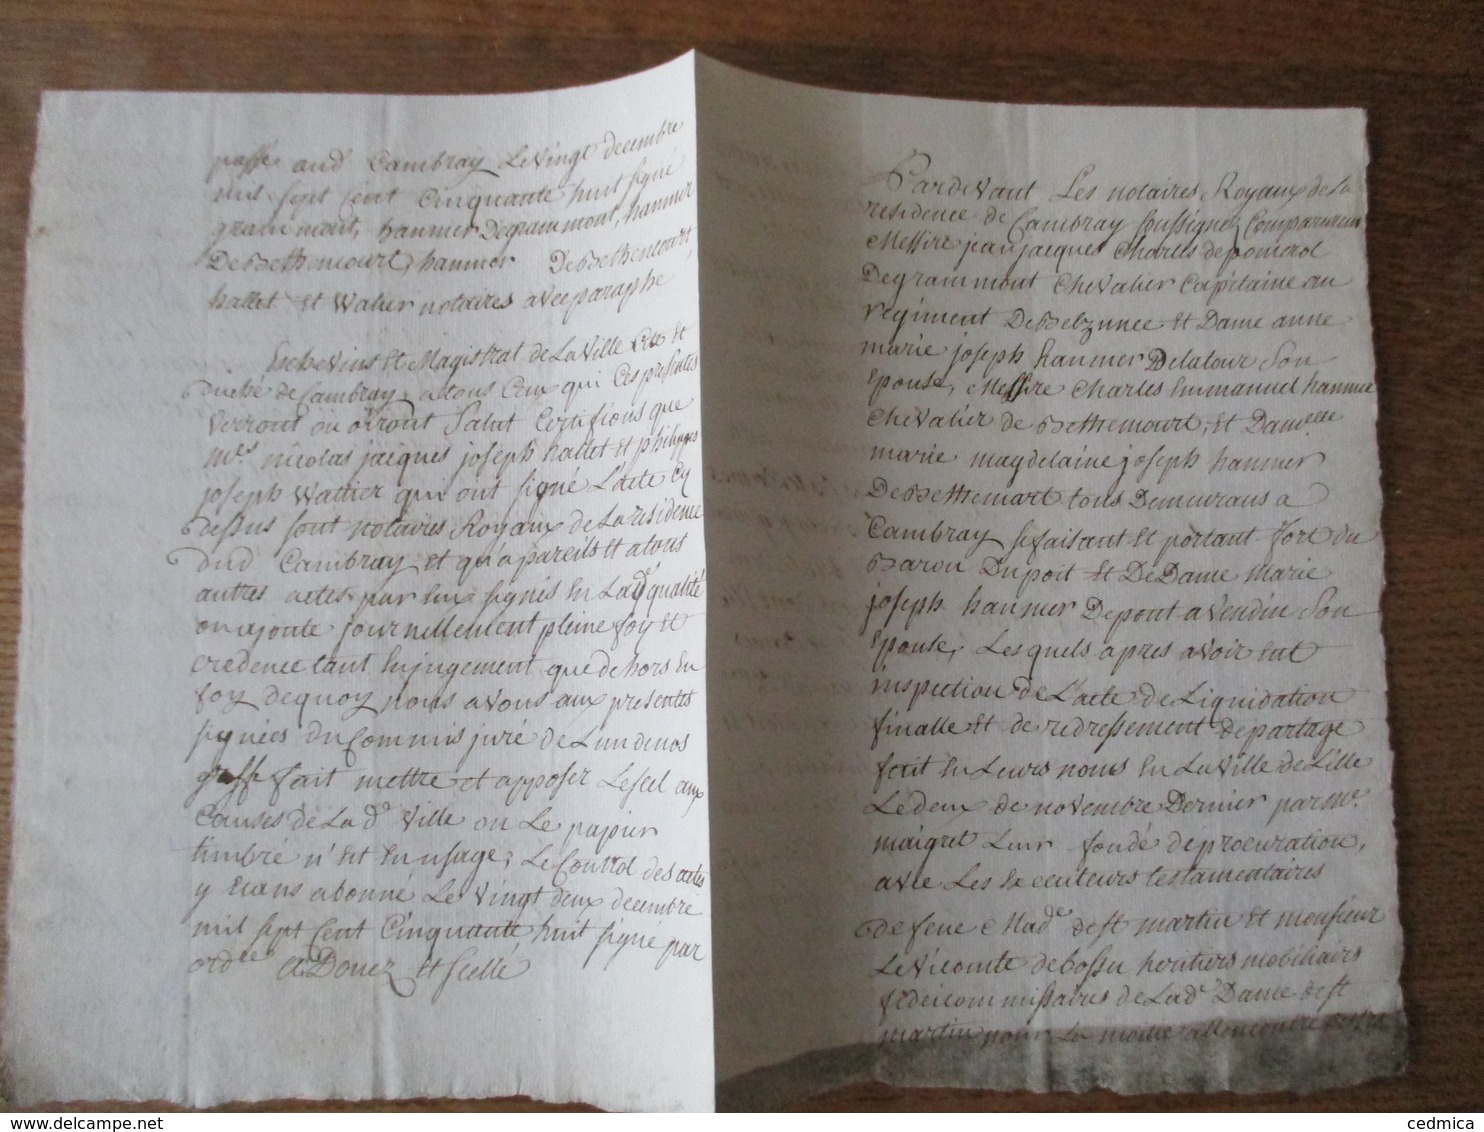 passé aud Cambray Le Vingt decembre
mil sept Cent Cinquante huit signé
grammont, hanmer Degrammont, hanmer
DeBethencourt, hanmer DeBethencourt,
hallet et Watier notaires avec paraphe
Eschevins et Magistrat de La Ville Cité et
Duché de Cambray, atous Ceux qui Ces presentes
Verront ou orront Salut Certifions que
mes nicolas jacques joseph hallet et philippes
joseph Wattier qui ont signé L'acte Cy
dessus sont notaires Royaux de La residence
dud Cambray et qu'a pareils et atous
autres actes par Eux signés En Lade qualité
on ajoute journellement pleine foy et
credence tant En jugement que dehors En
foy dequoy nous avons aux presentes
signées Du Commis juré de L'un denos
greffe fait mettre et apposer Le scel aux
Causes de La de Ville ou Le papier
timbré n'est En usage, Le Control des actes
y Etans abonné Le Vingt deux decembre
mil sept Cent Cinquante huit signé par
ordce A Douez et scellé
Pardevant Les notaires Royaux de La
residence de Cambray soussignez Comparurent
Messire jean jacques Charles de pomerol
Degrammont Chevalier Capitaine au
regiment DeBelzunce et Dame anne
marie joseph hanmer Delatour Son
Epouse, Messire Charles Emmanuel hanmer
Chevalier de Bethencourt, et Damelle
marie magdelaine joseph hanmer
DeBethencourt tous Demeurans a
Cambray se faisant et portant fort du
Baron Dupoit et De Dame marie
joseph hanmer Depont a Vendin Son
Epouse, Lesquels apres avoir eut
inspection de L'acte de Liquidation
finalle et de redressement de partage
fait En Leurs noms En La Ville de Lille
Le deux de novembre Dernier par Me
maigret Leur fondé de procuration,
avec Les Executeurs testamentaires
de feue Made de st martin et monsieur
Le Vicomte de bossu heritiers mobiliairs
fideicommissaires de Lade Dame de st
martin pour La moitié allencontre